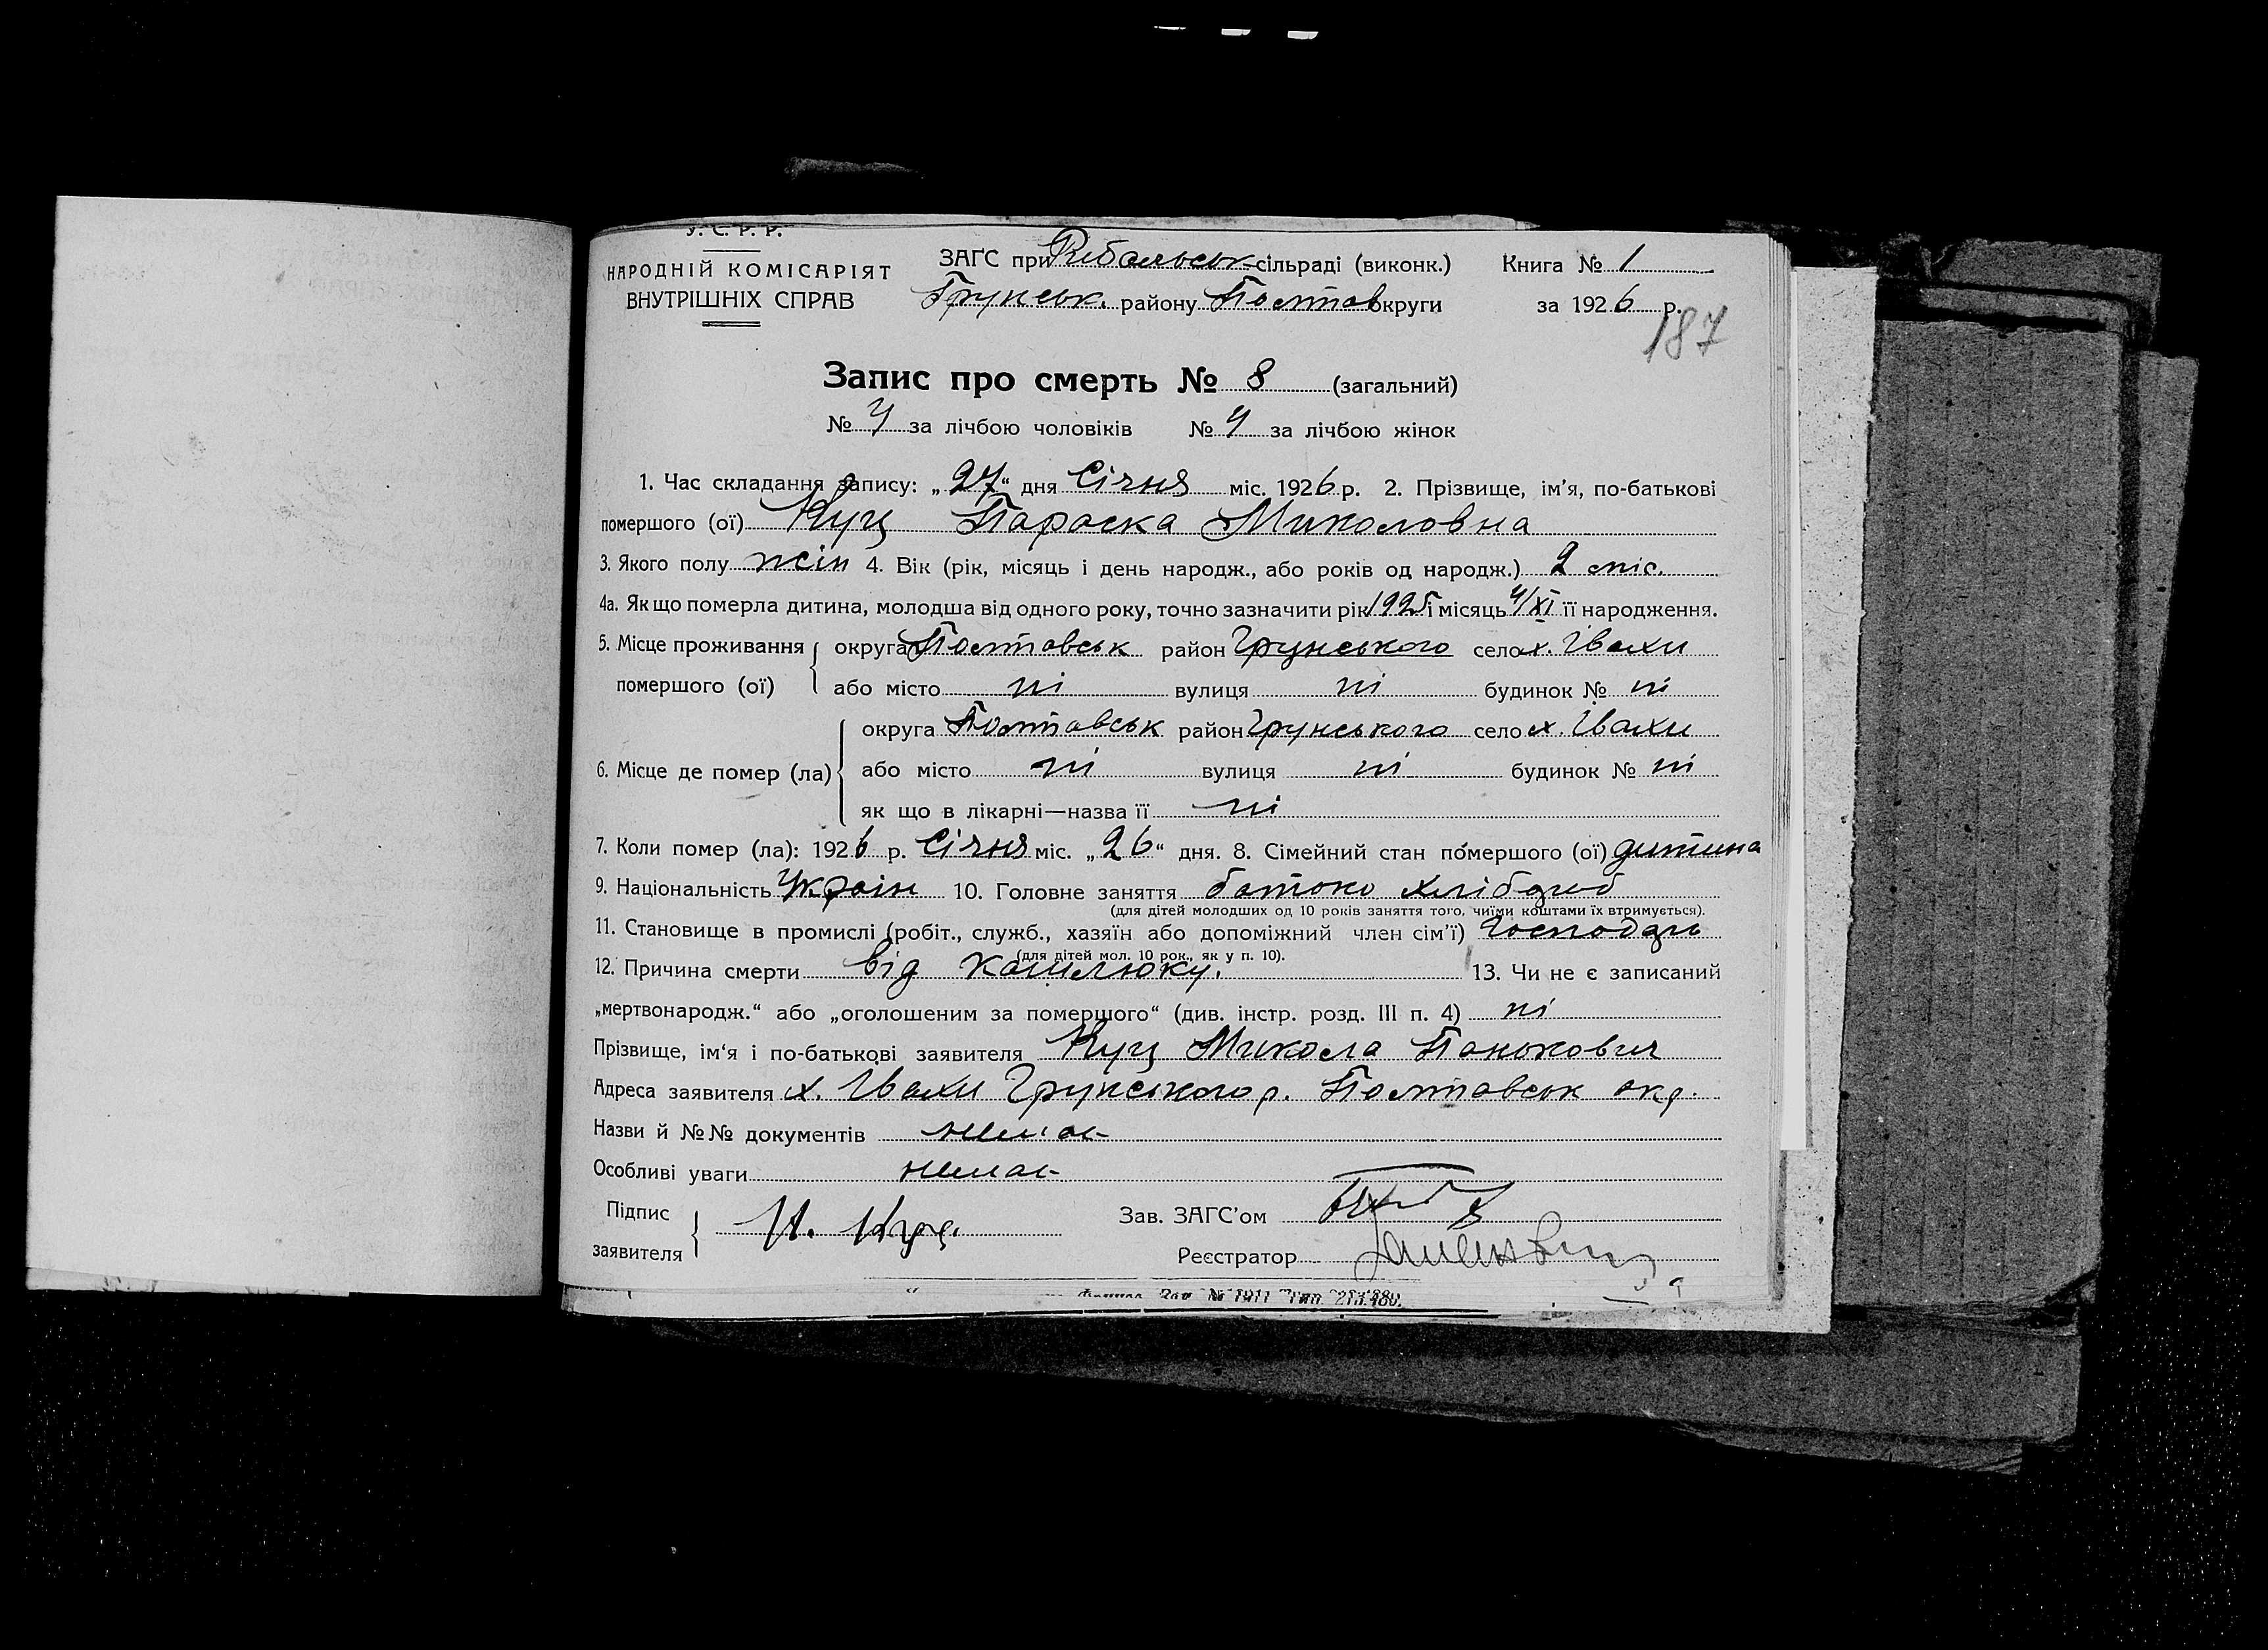 У. С. Р. Р.
НАРОДНІЙ КОМІСАРІЯТ
ВНУТРІШНІХ СПРАВ
ЗАГС при Рибальськ сільраді (виконк.) Книга № 1
Грунськ. району Полтав округи за 1926 р.
187
Запис про смерть № 8 (загальний)
№ 4 за лічбою чоловіків № 4 за лічбою жінок
1. Час складання запису: „27“ дня Січня міс. 1926 р. 2. Прізвище, ім’я, по-батькові
помершого (ої) Куц Параска Миколовна
3. Якого полу жін 4. Вік (рік, місяць і день народж., або років од народж.) 2 міс.
4а. Як що померла дитина, молодша від одного року, точно зазначити рік 1925 і місяць 4/XI її народження.
5. Місце проживання помершого (ої) округа Полтавськ район Грунського село х. Івахи
або місто ні вулиця ні будинок № ні
6. Місце де помер (ла) округа Полтавськ район Грунського село х. Івахи
або місто ні вулиця ні будинок № ні
як що в лікарні—назва її ні
7. Коли помер (ла): 1926 р. Січня міс. „26“ дня. 8. Сімейний стан помершого (ої) дитина
9. Національність Україн 10. Головне заняття батько хлібороб
(для дітей молодших од 10 років заняття того, чиїми коштами їх втримується).
11. Становище в промислі (робіт., служб., хазяїн або допоміжний член сім’ї) Господарь
(для дітей мол. 10 рок., як у п. 10).
12. Причина смерти від кашлюку. 13. Чи не є записаний
„мертвонародж.“ або „оголошеним за помершого“ (див. інстр. розд. III п. 4) ні
Прізвище, ім‘я і по-батькові заявителя Куц Микола Панькович
Адреса заявителя х. Івахи Грунського р. Полтавськ окр.
Назви й №№ документів немає
Особливі уваги немає
Підпис заявителя Н. Куц.
Зав. ЗАГС’ом
Реєстратор